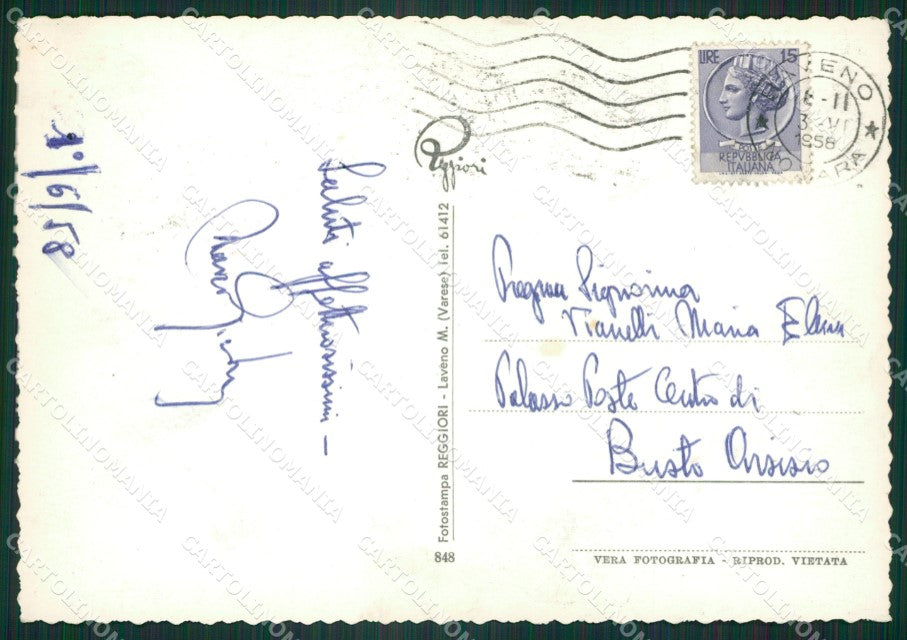 1°/6/58
Saluti affettuosissimi –
Reggiori
Fotostampa REGGIORI - Laveno M. (Varese) tel. 61412
848
LIRE 15
POSTE
REPVBBLICA
ITALIANA
8-11
1958
Signorina
Vianelli Maria Elena
Palazzo Poste Centro di
Busto Arsizio
VERA FOTOGRAFIA - RIPROD. VIETATA
CARTOLINOMANIA